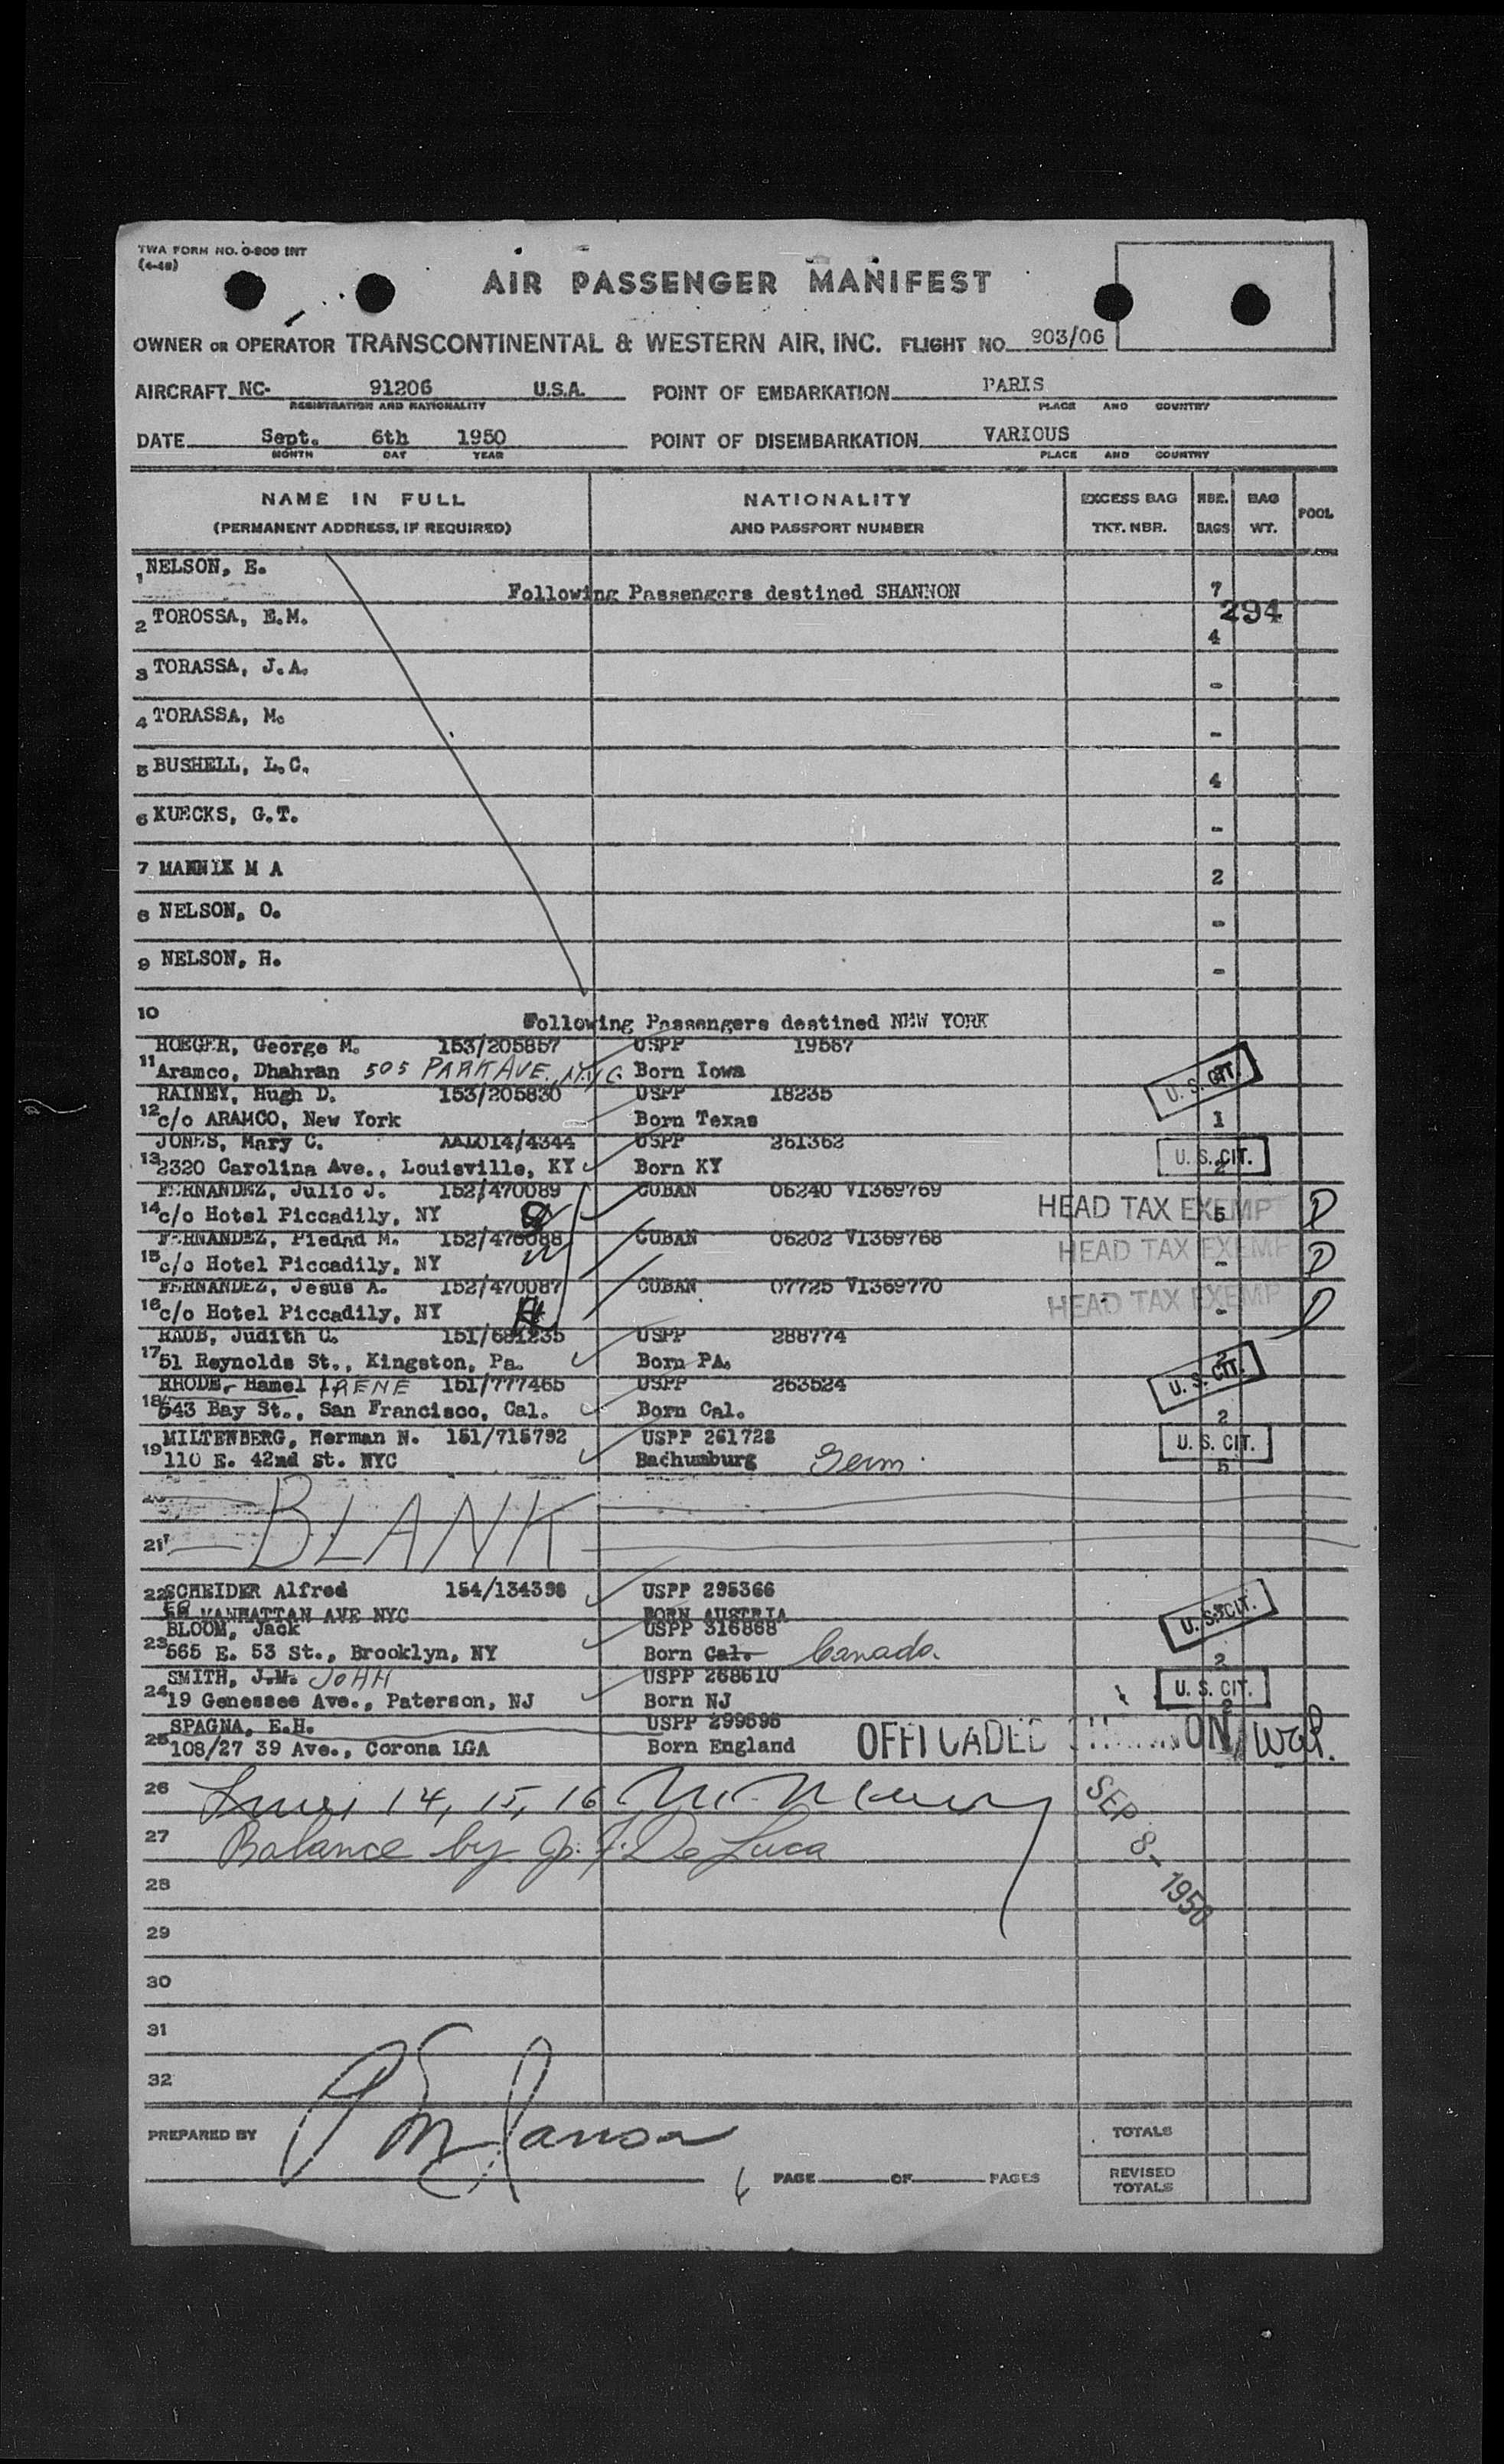 TWA FORM NO. O-800 INT
(4-48)
AIR PASSENGER MANIFEST
OWNER OR OPERATOR TRANSCONTINENTAL & WESTERN AIR, INC. FLIGHT NO. 903/06
AIRCRAFT NC- 91206 U.S.A. POINT OF EMBARKATION PARIS
REGISTRATION AND NATIONALITY PLACE AND COUNTRY
DATE Sept. 6th 1950 POINT OF DISEMBARKATION VARIOUS
MONTH DAY YEAR PLACE AND COUNTRY
NAME IN FULL NATIONALITY EXCESS BAG NBR. BAG POOL
(PERMANENT ADDRESS, IF REQUIRED) AND PASSPORT NUMBER TKT. NBR. BAGS WT.
1 NELSON, E.
Following Passengers destined SHANNON 7
294
2 TOROSSA, E.M. 4
3 TORASSA, J.A. -
4 TORASSA, M. -
5 BUSHELL, L.C. 4
6 KUECKS, G.T. -
7 MANNIX M A 2
8 NELSON, O. -
9 NELSON, H. -
10 Following Passengers destined NEW YORK
HOEGER, George M. 153/205857 USPP 19567
11 Aramco, Dhahran 505 PARK AVE. N.Y.C. Born Iowa U.S. CIT.
RAINEY, Hugh D. 153/205830 USPP 18235
12 c/o ARAMCO, New York Born Texas 1
JONES, Mary C. AAL014/4344 USPP 261362
13 2320 Carolina Ave., Louisville, KY Born KY U.S. CIT. 2
FERNANDEZ, Julio J. 152/470089 CUBAN 06240 V1369769
14 c/o Hotel Piccadily, NY HEAD TAX EXEMPT 5
FERNANDEZ, Piedad M. 152/470088 CUBAN 06202 V1369768
15 c/o Hotel Piccadily, NY HEAD TAX EXEMPT -
FERNANDEZ, Jesus A. 152/470087 CUBAN 07725 V1369770
16 c/o Hotel Piccadily, NY HEAD TAX EXEMPT -
RAUB, Judith C. 151/681235 USPP 288774
17 51 Reynolds St., Kingston, Pa. Born PA. U.S. CIT. 2
RHODE, Hamel IRENE 151/777465 USPP 263524
18 643 Bay St., San Francisco, Cal. Born Cal. 2
MILTENBERG, Herman N. 151/715792 USPP 261728
19 110 E. 42nd St. NYC Bachumburg Germ. U.S. CIT. 5
20 BLANK
21
22 SCHEIDER Alfred 154/134398 USPP 295366
58 MANHATTAN AVE NYC BORN AUSTRIA U.S. CIT.
BLOOM, Jack USPP 316868
23 565 E. 53 St., Brooklyn, NY Born Cal. Canada. 2
SMITH, J.M. JOHN USPP 268610
24 19 Genessee Ave., Paterson, NJ Born NJ U.S. CIT. 2
SPAGNA, E.H. USPP 299595
25 108/27 39 Ave., Corona LGA Born England OFFLOADED SHANNON
26 Lines 14, 15, 16
SEP 8 - 1950
27 Balance by J. F. De Luca
28
29
30
31
32
PREPARED BY TOTALS
PAGE OF PAGES REVISED TOTALS